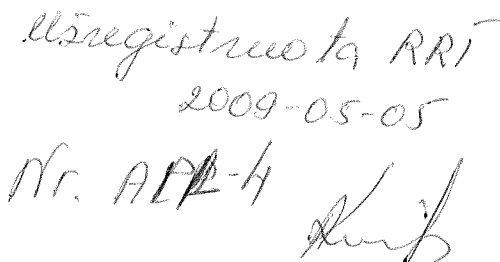 Užregistruota RRT
2009-05-05
Nr.